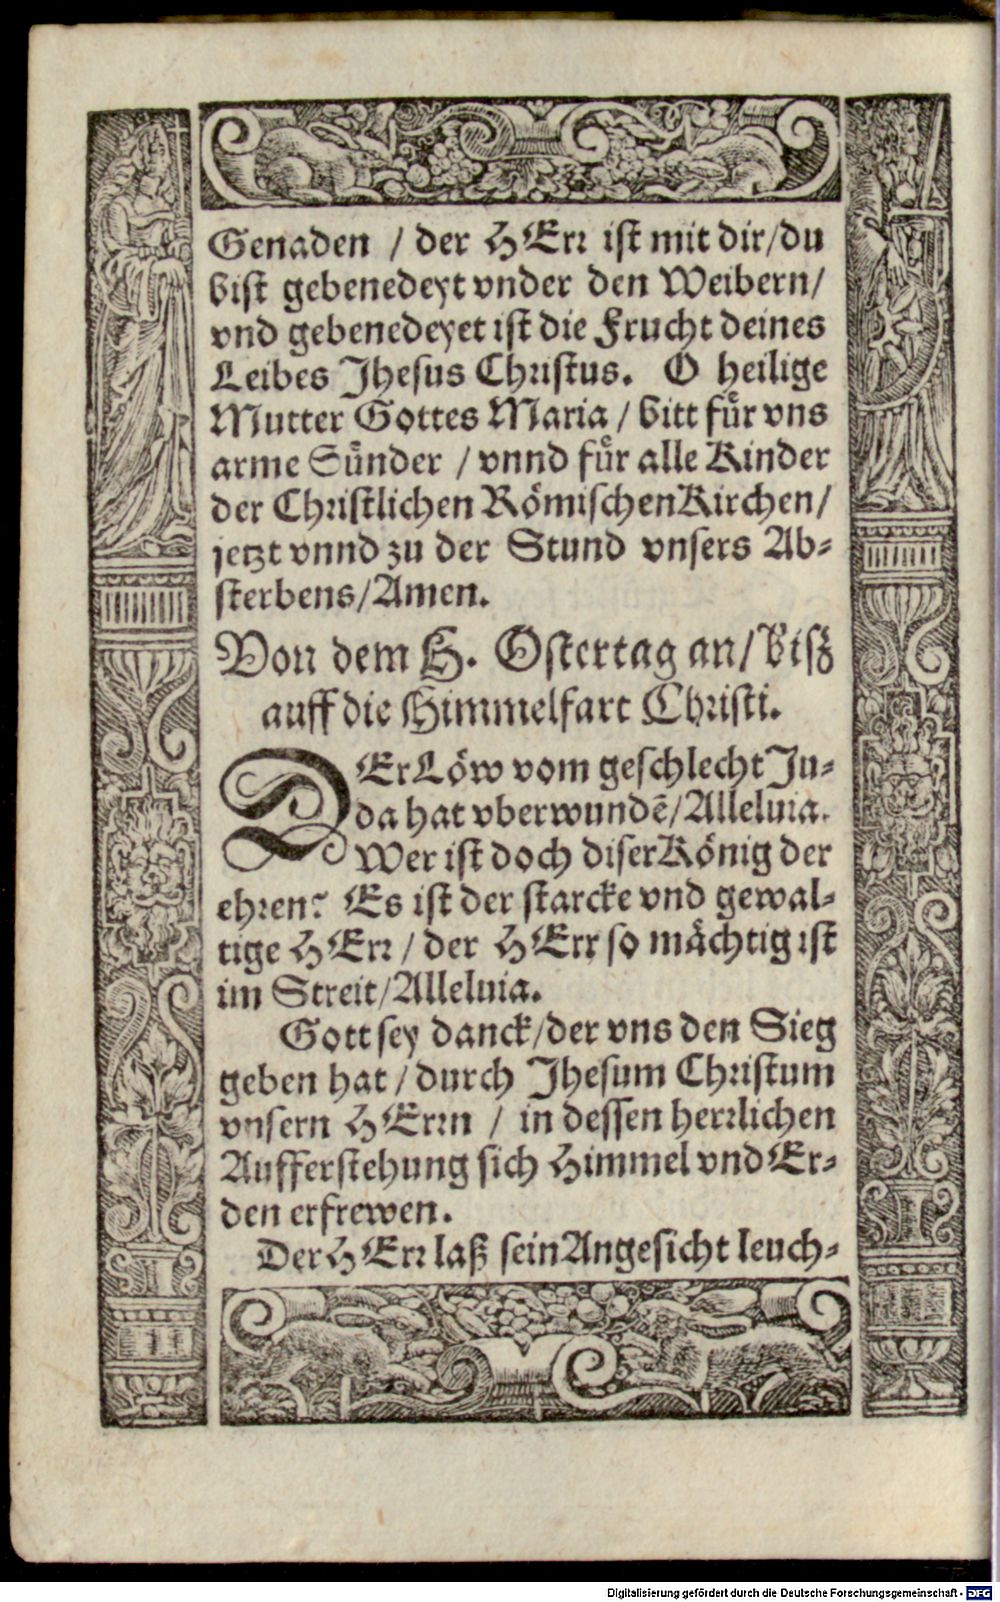 Genaden / der HErr ist mit dir/du
bist gebenedeyt vnder den Weibern/
vnd gebenedeyet ist die Frucht deines
Leibes Jhesus Christus. O heilige
Mutter Gottes Maria / bitt fuͤr vns
arme Suͤnder / vnnd fuͤr alle Kinder
der Christlichen Roͤmischen Kirchen/
jetzt vnnd zu der Stund vnsers Ab-
sterbens/Amen.
Von dem H. Ostertag an/ bisz
auff die Himmelfart Christi.
DEr Loͤw vom geschlecht Ju-
da hat vberwundẽ/Alleluia.
Wer ist doch diser Koͤnig der
ehren? Es ist der starcke vnd gewal-
tige HErr / der HErr so maͤchtig ist
im Streit/Alleluia.
Gott sey danck/der vns den Sieg
geben hat / durch Jhesum Christum
vnsern HErrn / in dessen herrlichen
Aufferstehung sich Himmel vnd Er-
den erfrewen.
Der HErr laß sein Angesicht leuch-
Digitalisierung gefördert durch die Deutsche Forschungsgemeinschaft - DFG